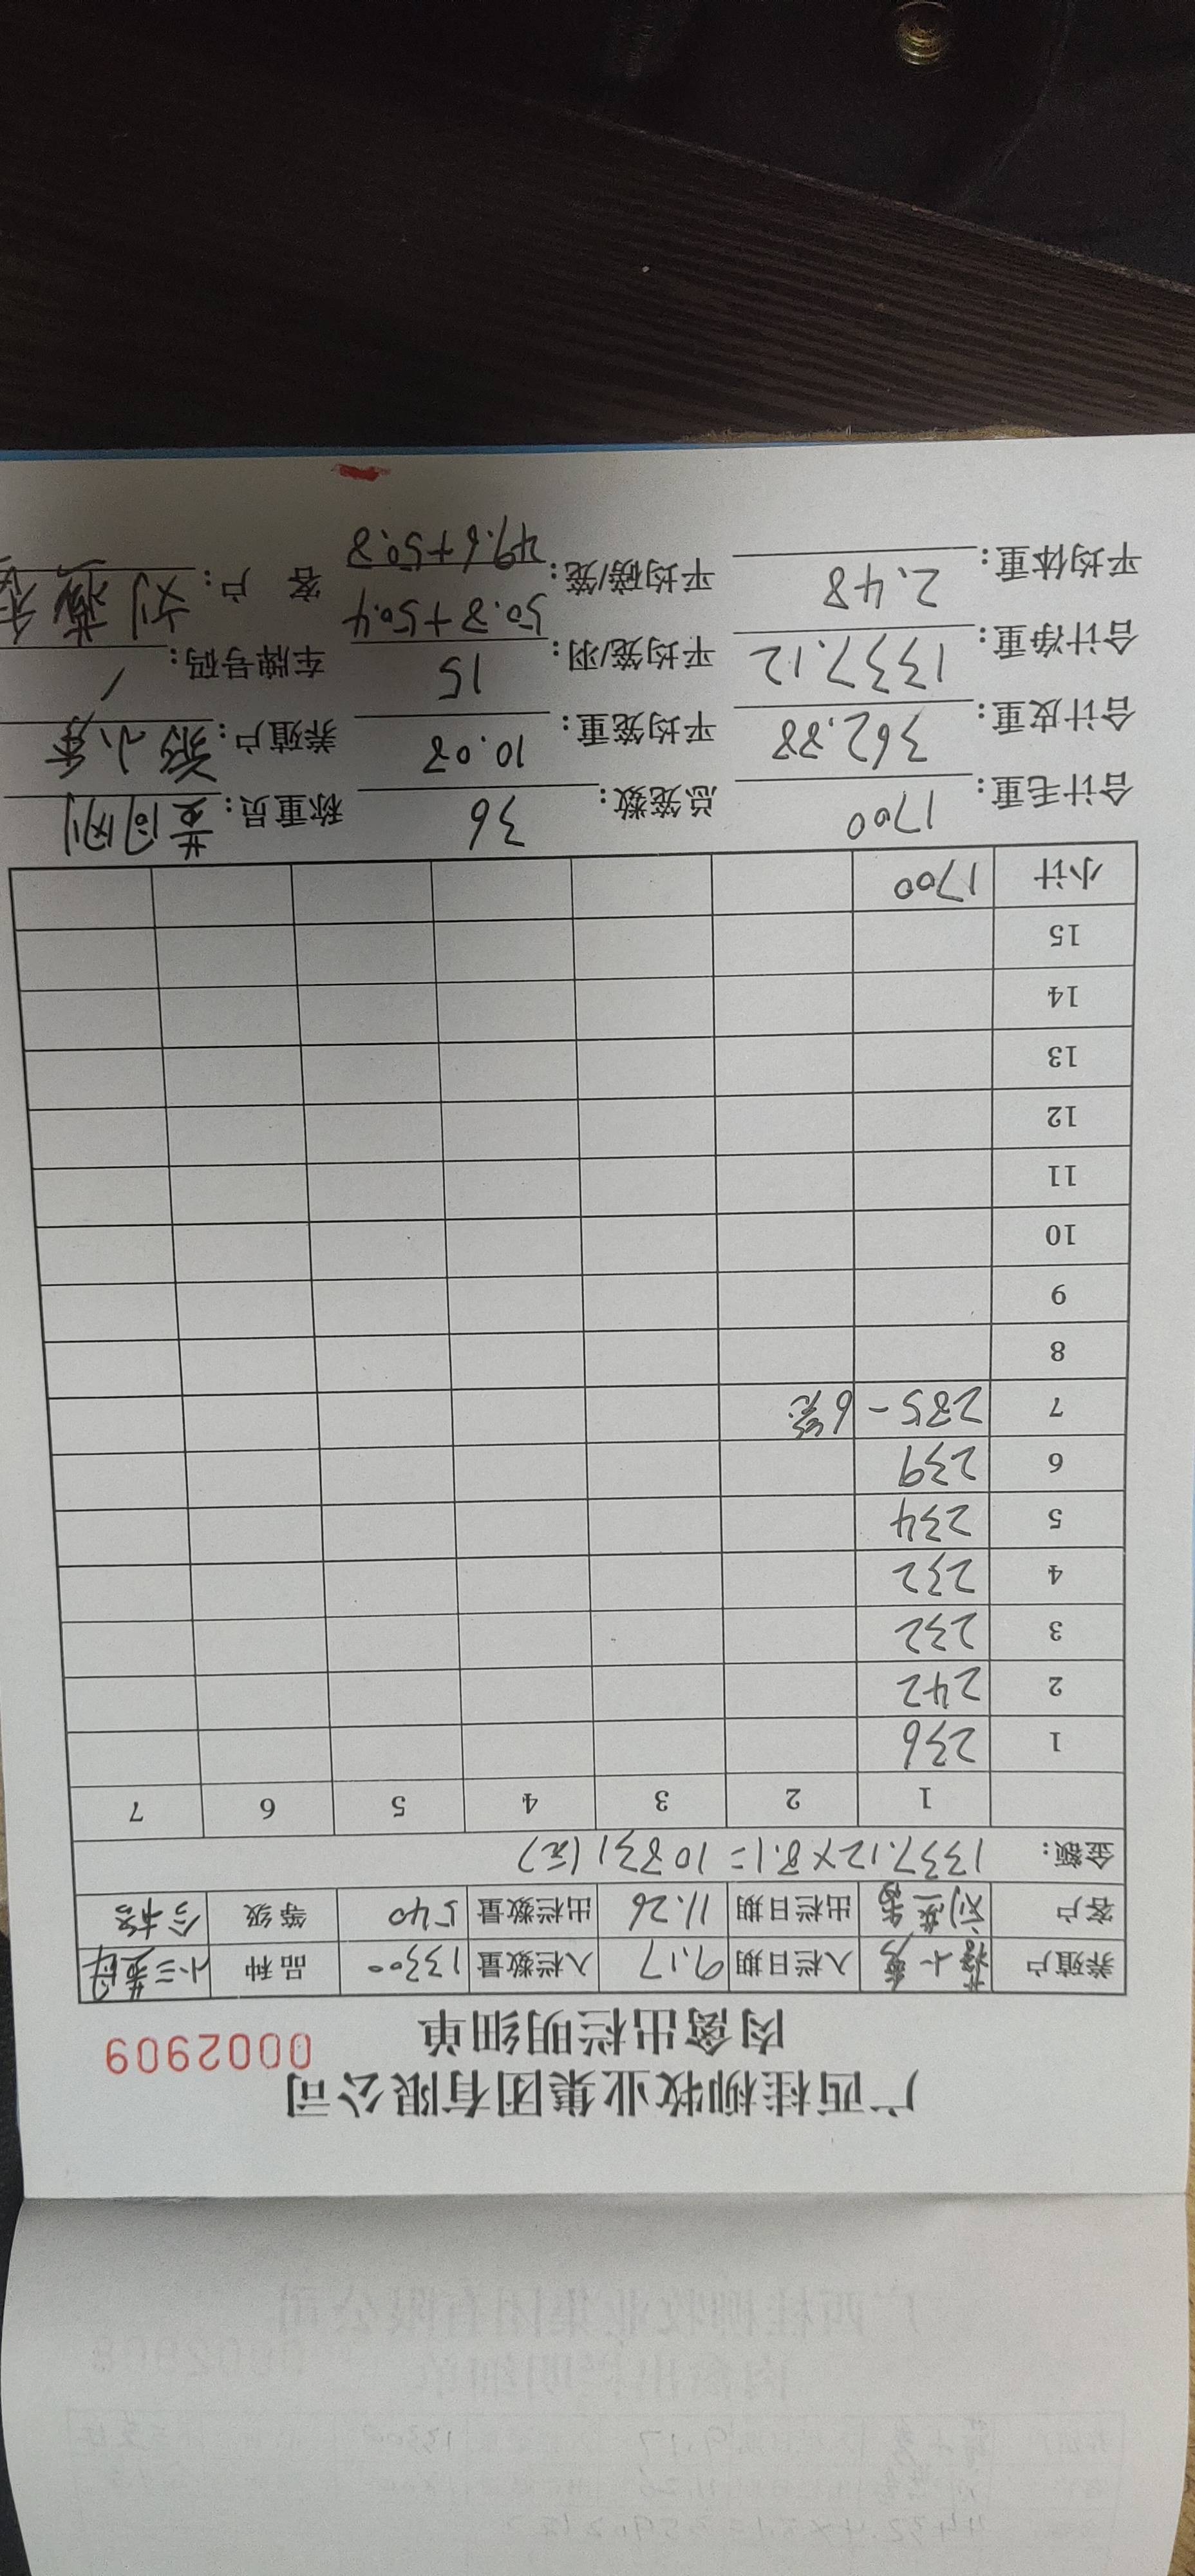 广西桂柳牧业集团有限公司
肉禽出栏明细单
0002909
养殖户 小 入栏日期 9.17 入栏数量 13300 品种 小三黄母
客户 刘 出栏日期 11.26 出栏数量 540 等级 合格
金额: 1337.12×8.1=10831(元)
1 2 3 4 5 6 7
1 236
2 242
3 232
4 232
5 234
6 239
7 285-6笼
8
9
10
11
12
13
14
15
小计 1700
合计毛重: 1700 总笼数: 36 称重员:
合计皮重: 362.88 平均笼重: 10.08 养殖户: 小
合计净重: 1337.12 平均笼/羽: 15 车牌号码: /
50.8+50.4
平均体重: 2.48 平均磅/笼: 49.6+50.8 客 户: 刘